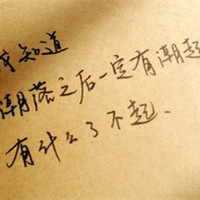 知道
潮落之后一定有潮起
有什么了不起、